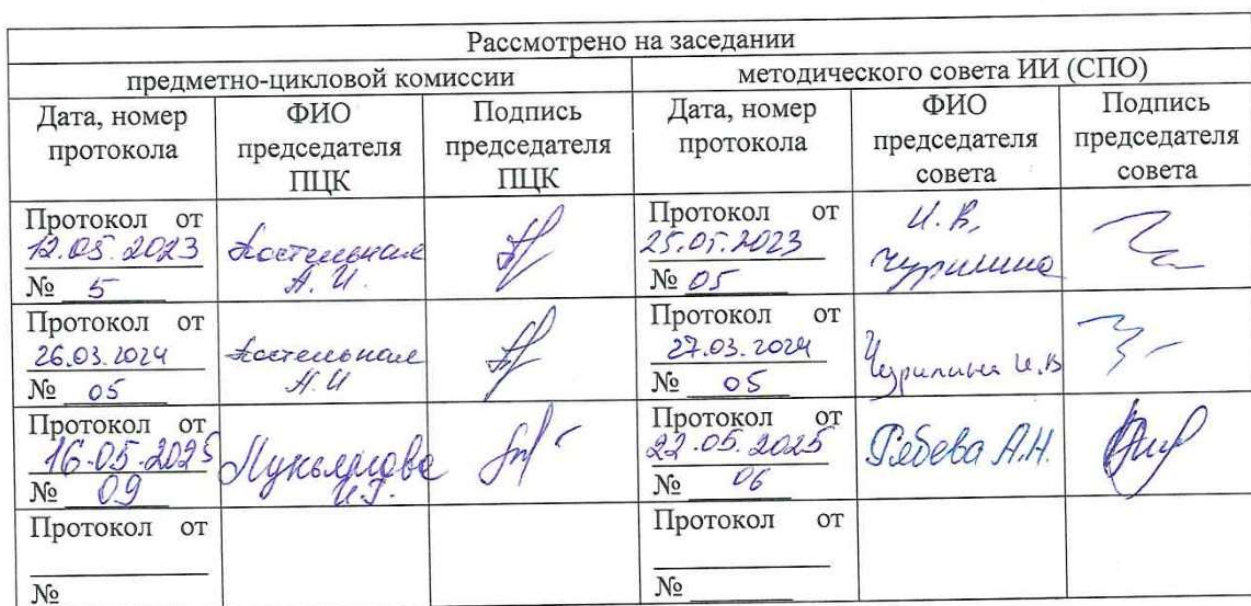 Рассмотрено на заседании
предметно-цикловой комиссии
методического совета ИИ (СПО)
Дата, номер
протокола
ФИО
председателя
ПЦК
Подпись
председателя
ПЦК
Дата, номер
протокола
ФИО
председателя
совета
Подпись
председателя
совета
Протокол от
12.05.2023
№ 5
Костельная
А. И.
Протокол от
25.05.2023
№ 05
И. В.
Чурилина
Протокол от
26.03.2024
№ 05
Костельная
А. И
Протокол от
27.03.2024
№ 05
Чурилина И.В
Протокол от
16.05.2025
№ 09
Лукьянова
И.Г.
Протокол от
22.05.2025
№ 06
А.Н.
Протокол от
№
Протокол от
№